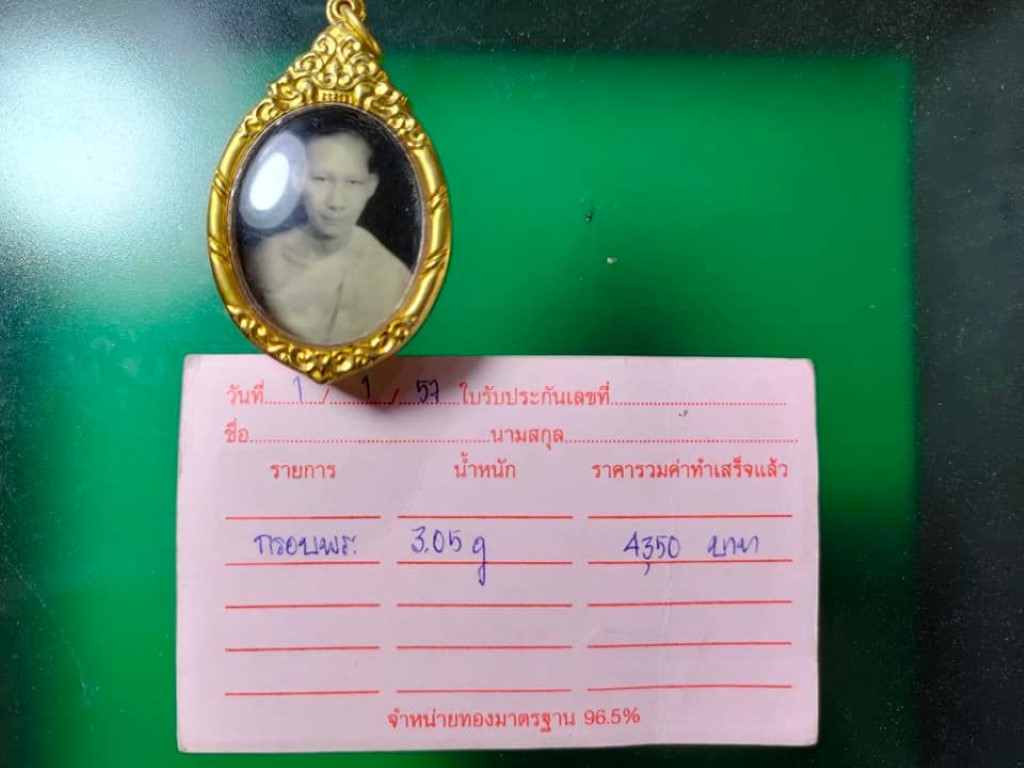 วันที่ 1 / 1 / 57 ใบรับประกันเลขที่
ชื่อ นามสกุล
รายการ น้ำหนัก ราคารวมค่าทำเสร็จแล้ว
กรอบพระ 3.05 g 4,350 บาท
จำหน่ายทองมาตรฐาน 96.5%